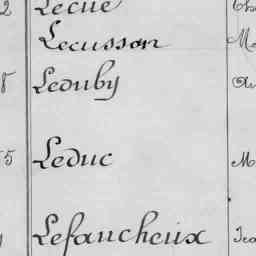 2 Lecue
Lecusson
8 Leduby
5 Leduc
Lefaucheux